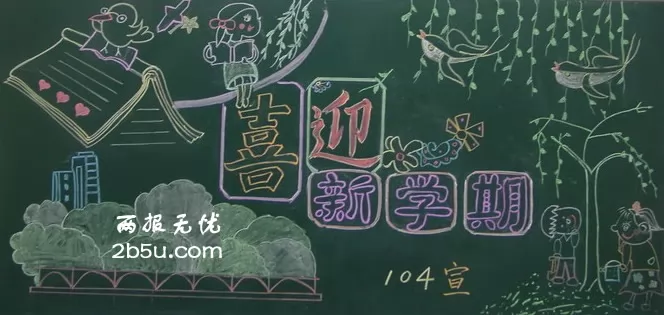 喜迎
新学期
两报无忧
2b5u.com
104宣